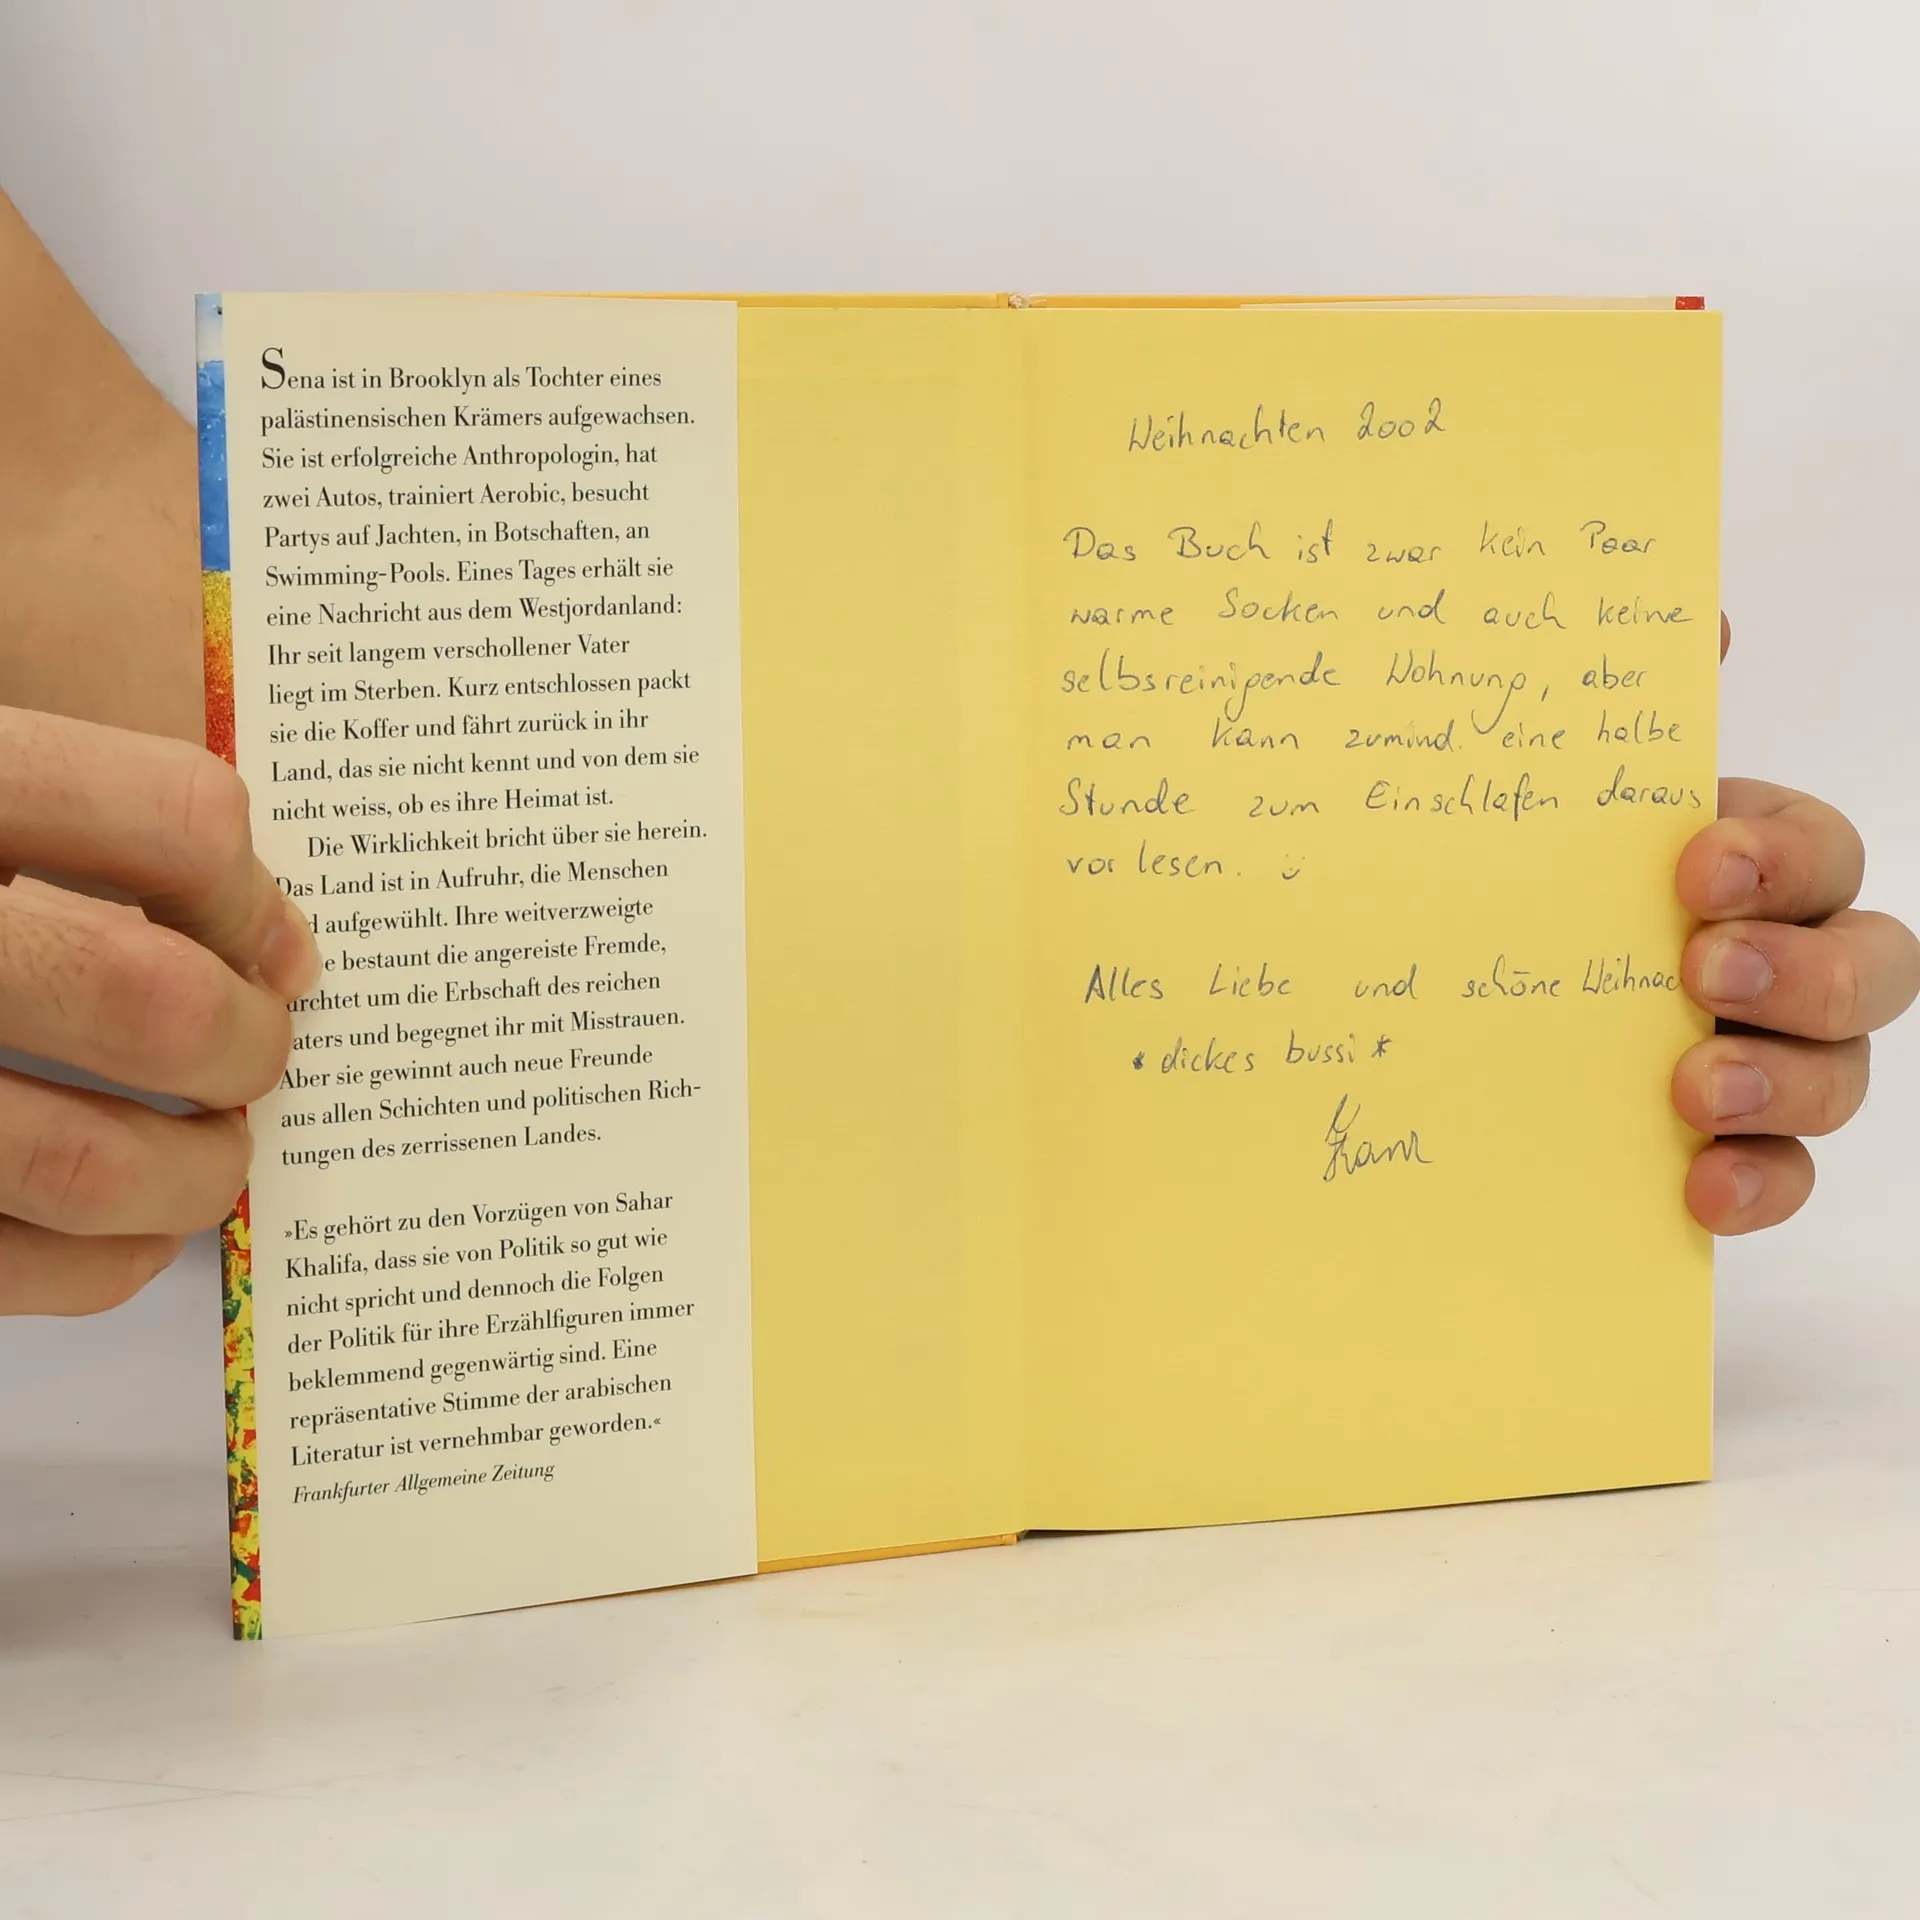 Sena ist in Brooklyn als Tochter eines
palästinensischen Krämers aufgewachsen.
Sie ist erfolgreiche Anthropologin, hat
zwei Autos, trainiert Aerobic, besucht
Partys auf Jachten, in Botschaften, an
Swimming-Pools. Eines Tages erhält sie
eine Nachricht aus dem Westjordanland:
Ihr seit langem verschollener Vater
liegt im Sterben. Kurz entschlossen packt
sie die Koffer und fährt zurück in ihr
Land, das sie nicht kennt und von dem sie
nicht weiss, ob es ihre Heimat ist.
Die Wirklichkeit bricht über sie herein.
Das Land ist in Aufruhr, die Menschen
d aufgewühlt. Ihre weitverzweigte
e bestaunt die angereiste Fremde,
ürchtet um die Erbschaft des reichen
aters und begegnet ihr mit Misstrauen.
Aber sie gewinnt auch neue Freunde
aus allen Schichten und politischen Rich-
tungen des zerrissenen Landes.
»Es gehört zu den Vorzügen von Sahar
Khalifa, dass sie von Politik so gut wie
nicht spricht und dennoch die Folgen
der Politik für ihre Erzählfiguren immer
beklemmend gegenwärtig sind. Eine
repräsentative Stimme der arabischen
Literatur ist vernehmbar geworden.«
Frankfurter Allgemeine Zeitung
Weihnachten 2002
Das Buch ist zwar kein Paar
warme Socken und auch keine
selbsreinigende Wohnung, aber
man kann zumind. eine halbe
Stunde zum Einschlafen daraus
vor lesen. ü
Alles Liebe und schöne Weihnac
* dickes bussi *